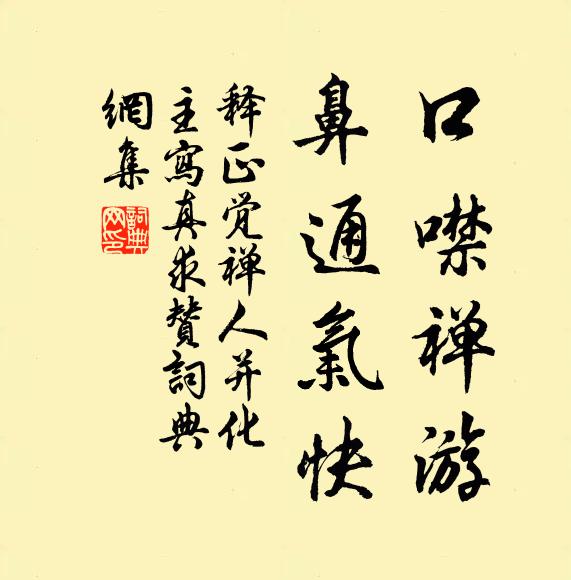 口噤禅游
鼻通氣快
释正觉禅人并化
主寫真求賛詞典
網集
詞典網印